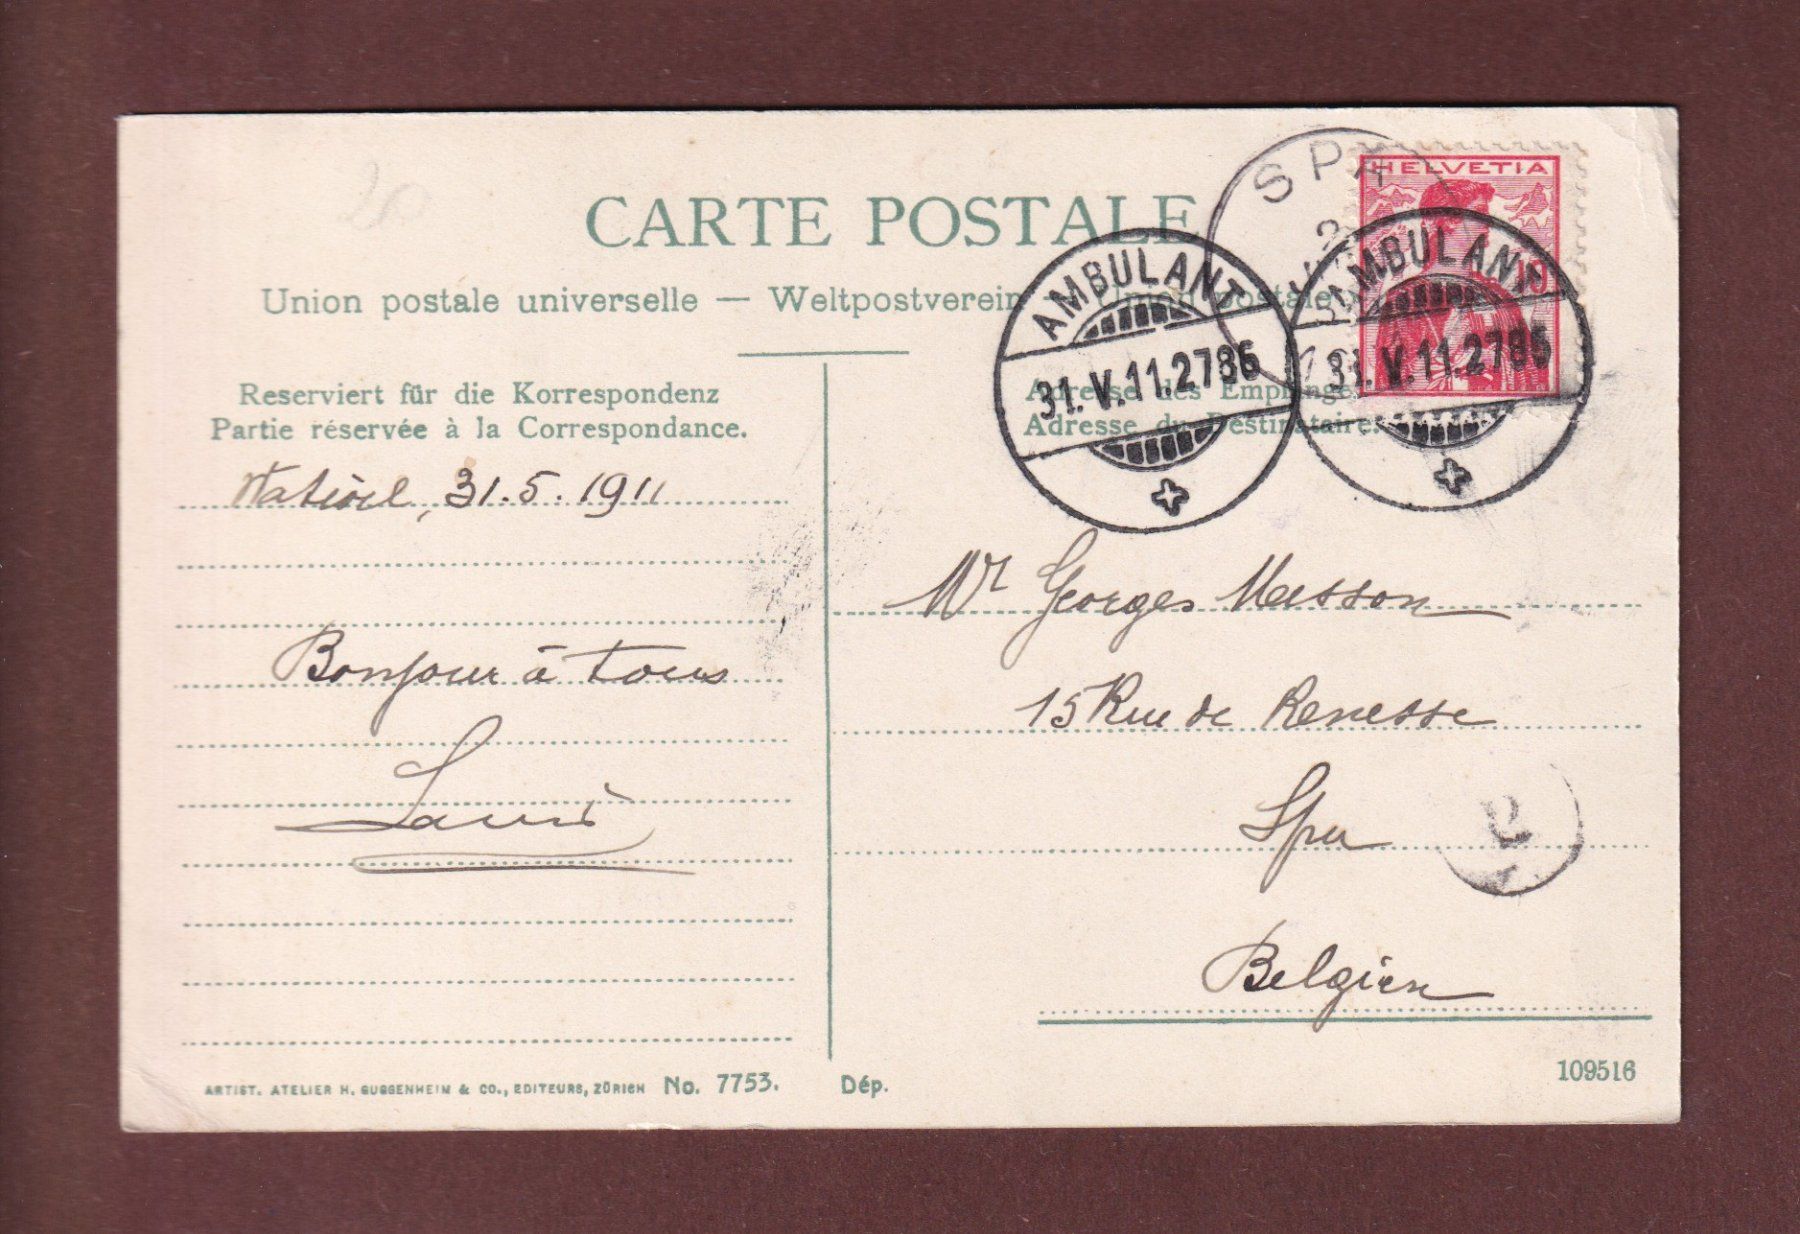 20
CARTE POSTALE
Union postale universelle — Weltpostverein — Union postale
Reserviert für die Korrespondenz
Partie réservée à la Correspondance.
31.5.1911
Bonjour à tous
SPA
HELVETIA
10
AMBULANT
31.V.11.2786
AMBULANT
31.V.11.2786
Adresse des Empfänge
Adresse du Destinataire.
Mr Georges Masson
15 Rue de Renesse
Spa
Belgien
ARTIST. ATELIER H. GUGGENHEIM & CO., EDITEURS, ZÜRICH No. 7753.
Dép.
109516